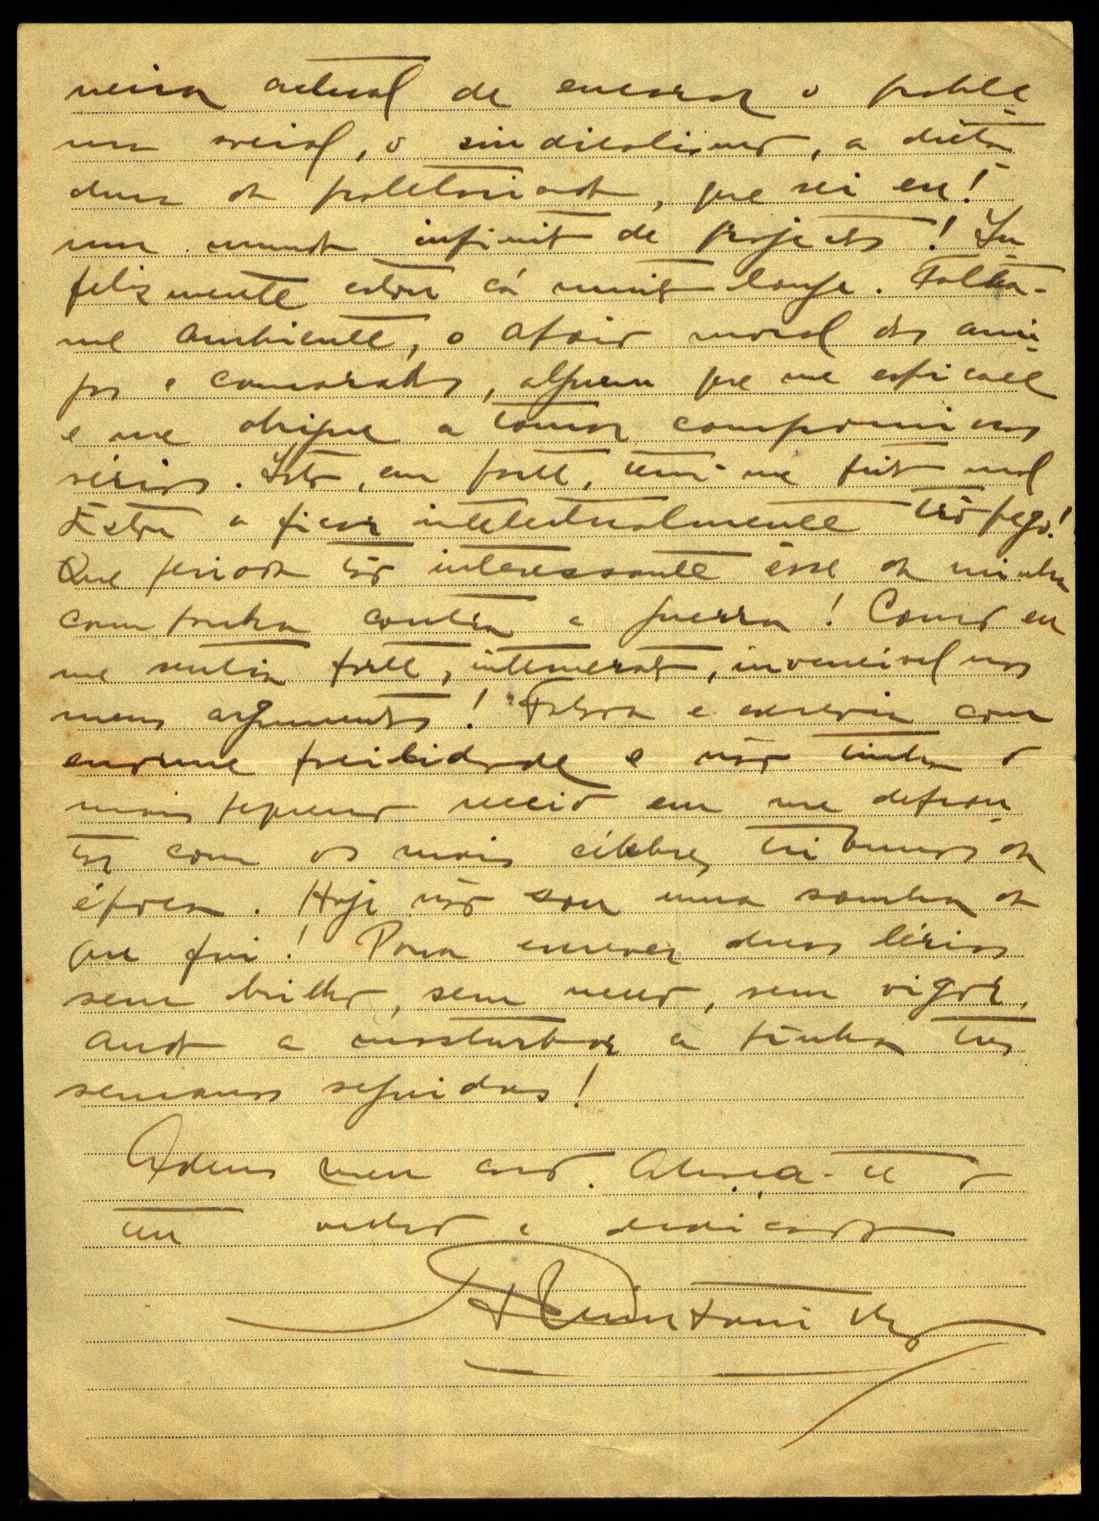 neira actual de encarar o proble
ma social, o sindicalismo, a dicta
dura do proletariado, que sei eu!
um mundo infinito de projectos! In
felizmente estou cá muito longe. Falta-
me ambiente, o apoio moral dos ami
gos e camaradas, alguem que me espicace
e me obrigue a tomar compromissos
sérios. Isto, em parte, tem-me feito mal
Estou a ficar intelectualmente trôpego!
Que periodo tão interessante êsse da minha
campanha contra a guerra! Como eu
me sentia forte, intemerato, invencivel nos
meus argumentos! Falava e escrevia com
enorme facilidade e não tinha o
mais pequeno receio em me defron
tar com os mais célebres tribunos da
época. Hoje não sou uma sombra do
que fui! Para escrever duas lérias
sem brilho, sem nexo, sem vigor,
ando a masturbar a tinha tres
semanas seguidas!
Adeus meu caro. Abraça-te o
teu velho e dedicado
Quintanilha